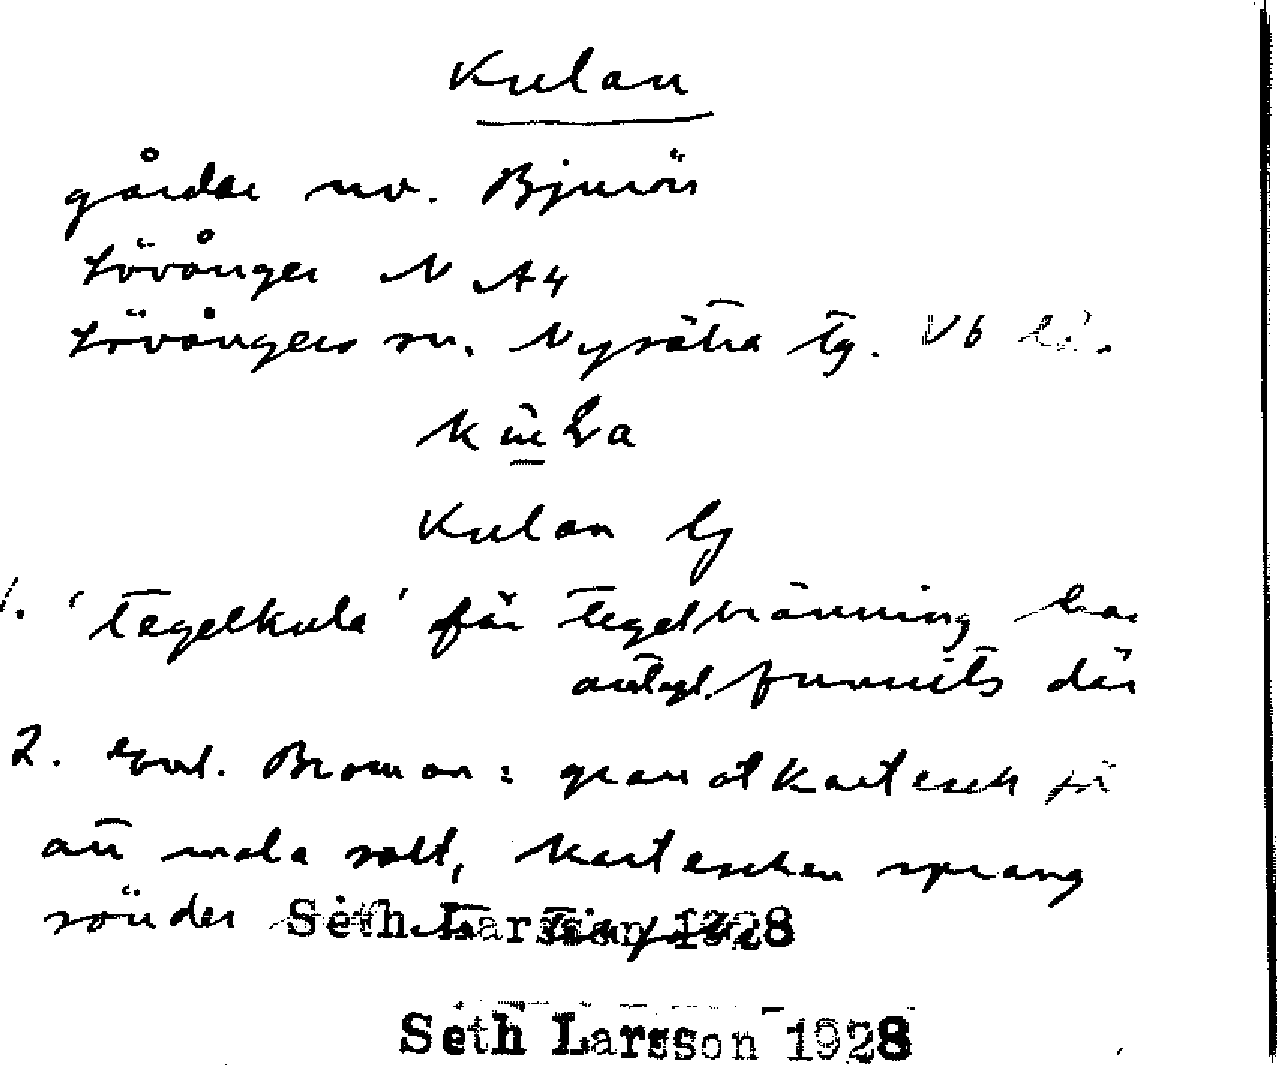 Kulan
gårdar nv. Bjurön
Lövånger N A4
Lövångers sn. Nysätra tg. Vb län.
Kulan
1. 'tegelkula' för tegelbränning har
antagl. funnits där
2. Enl. Broman: granatkartesch för
att mala salt, karteschen sprang
sönder Seth Larsson 1928
Seth Larsson 1928